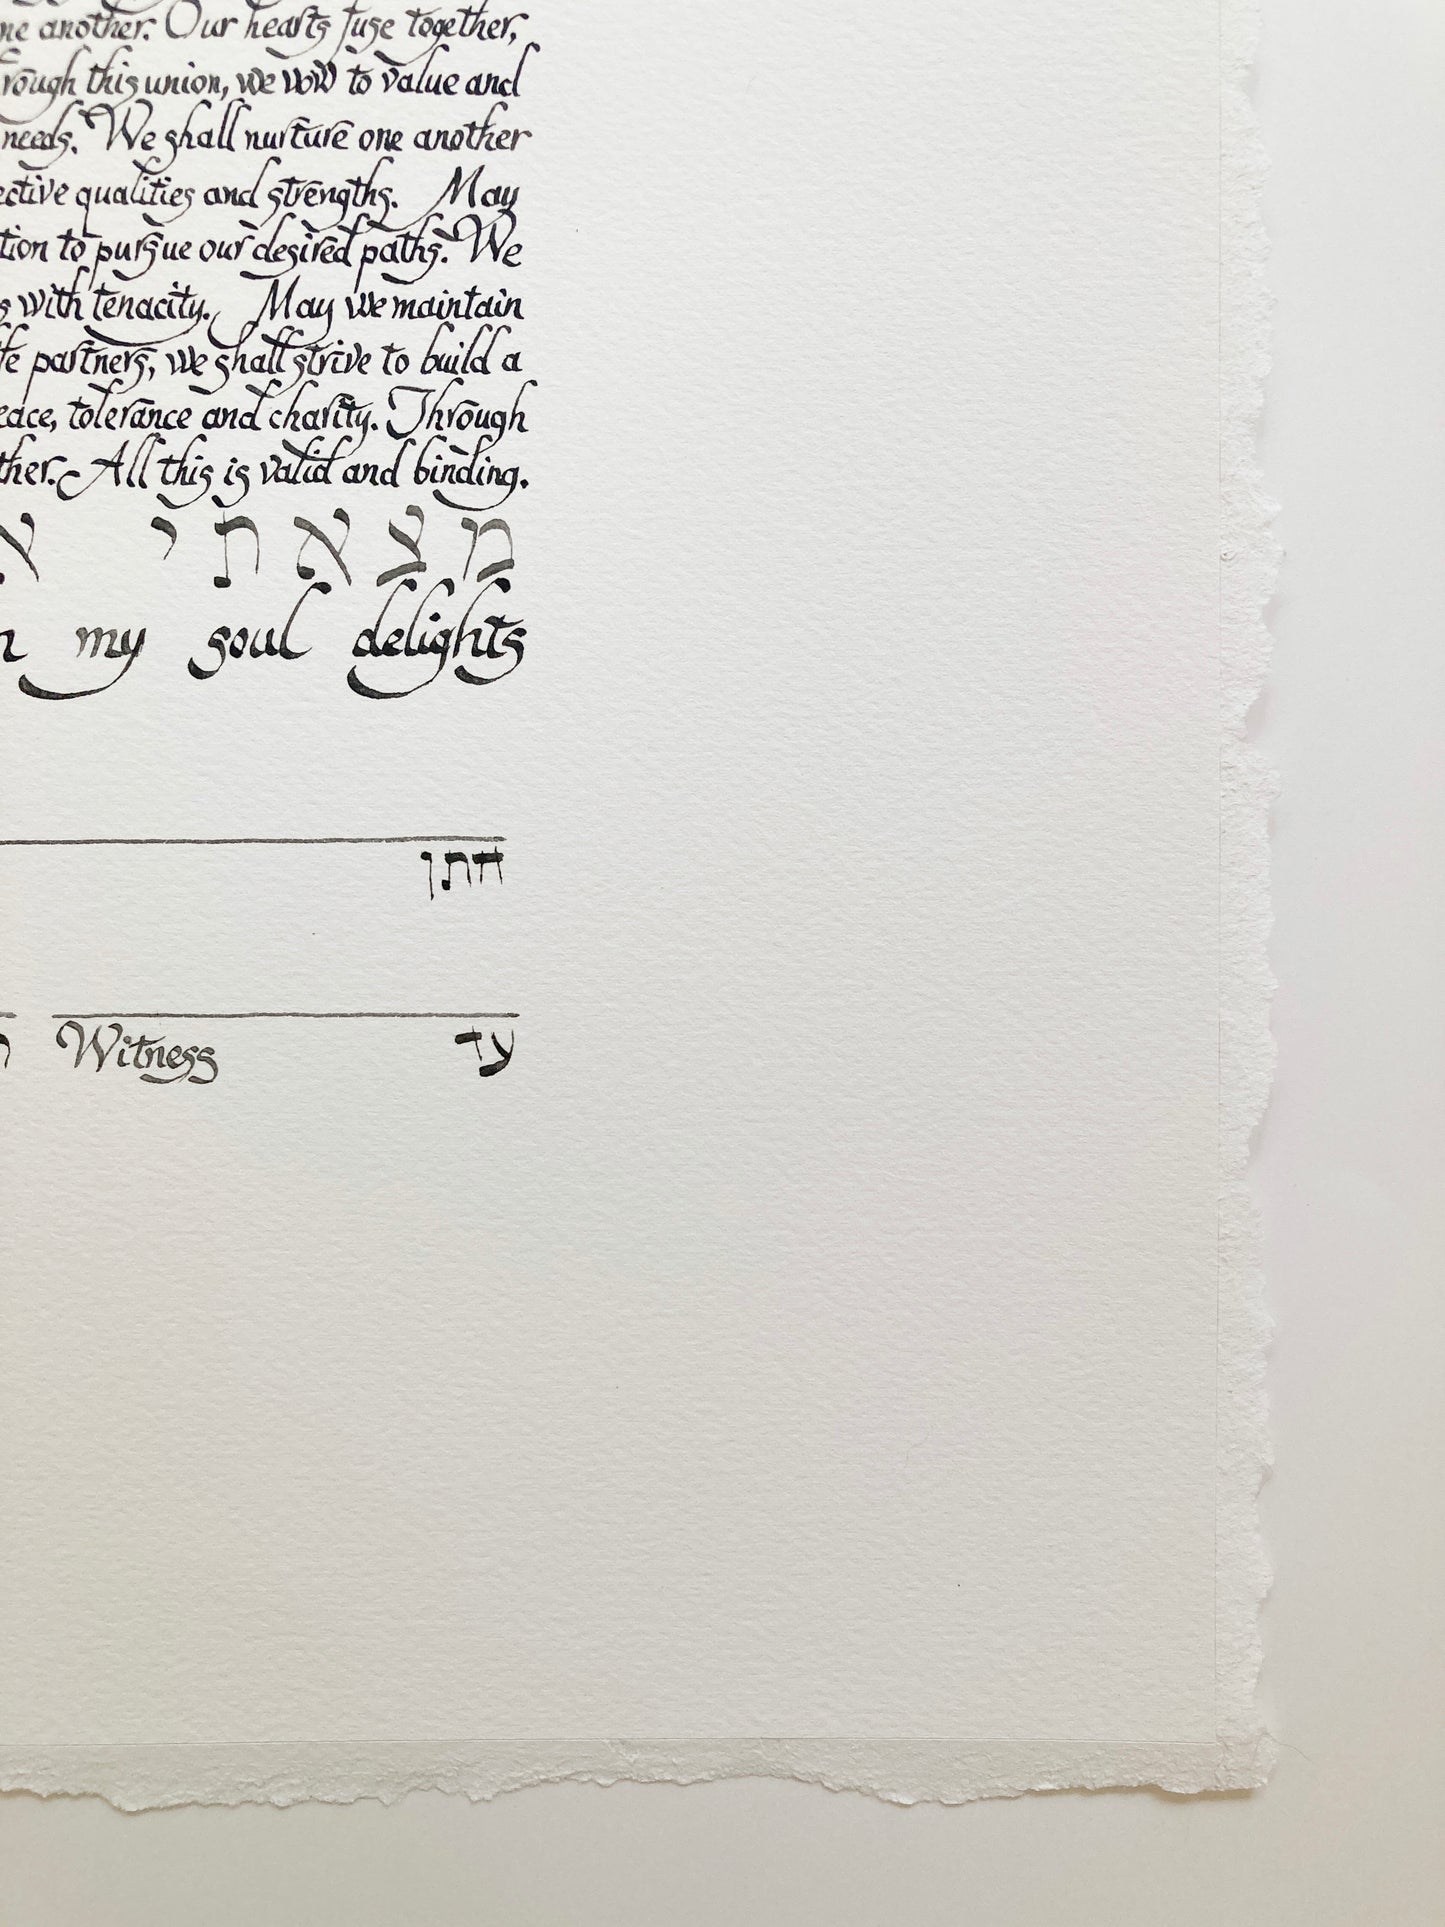 ne another. Our hearts fuse together,
rough this union, we vow to value and
needs. We shall nurture one another
ective qualities and strengths. May
tion to pursue our desired paths. We
s with tenacity. May we maintain
fe partners, we shall strive to build a
eace, tolerance and charity. Through
ther. All this is valid and binding.
מצאתי א
n my soul delights
חתן
Witness עד